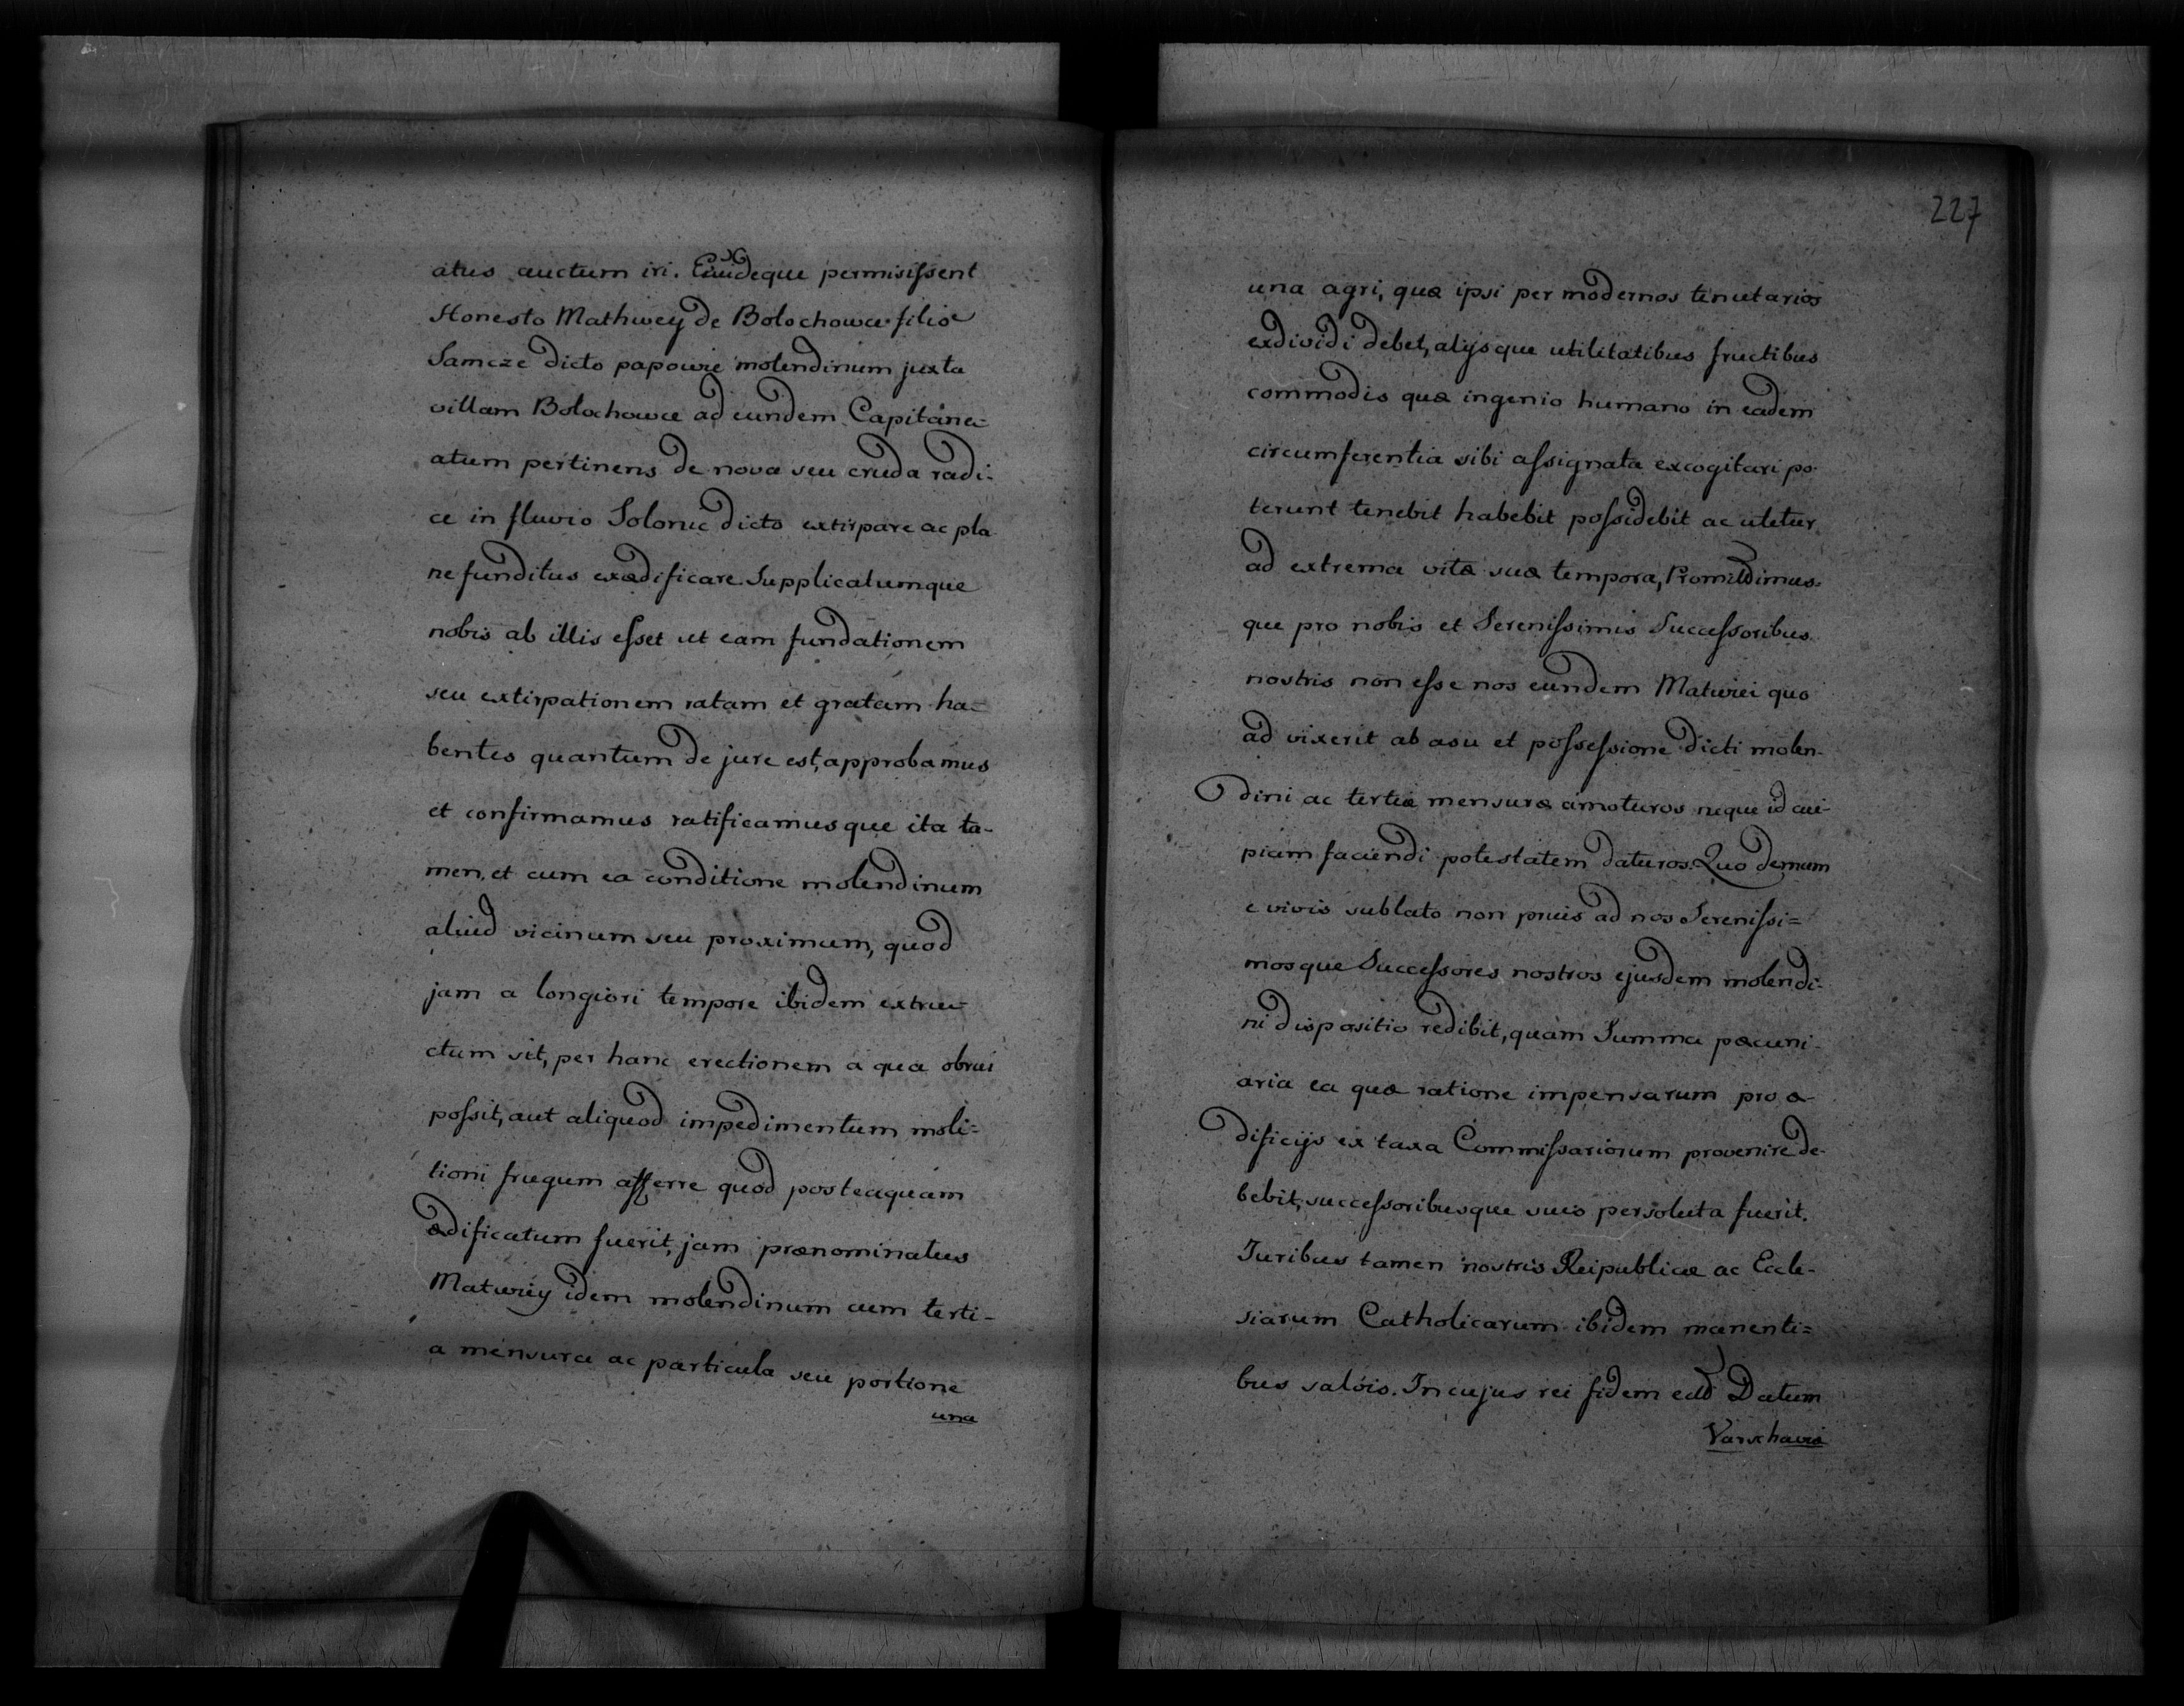 atus auctum iri. Eundeque permisissent
Honesto Mathwey de Bolochowce filio
Samcze dicto papowie molendinum juxta
villam Bolochowce ad eundem Capitane-
atum pertinens de nova seu cruda radi-
ce in fluvio Solonic dicto extirpare ac pla
ne funditus exædificare. Supplicatumque
nobis ab illis esset ut eam fundationem
seu extirpationem ratam et gratam ha-
bentes quantum de jure est, approbamus
et confirmamus ratificamusque ita ta-
men, et cum ea conditione molendinum
aliud vicinum seu proximum, quod
jam a longiori tempore ibidem extru-
ctum sit, per hanc erectionem a qua obrui
possit, aut aliquod impedimentum moli-
tioni frugum afferre quod posteaquam
ædificatum fuerit, jam prænominatus
Matwiey idem molendinum cum terti-
a mensura ac particula seu portione
una
227
una agri, quæ ipsi per modernos tenutarios
exdividi debet, alijsque utilitatibus fructibus
commodis quæ ingenio humano in eadem
circumferentia sibi assignata excogitari po-
terunt tenebit habebit possidebit ac utetur
ad extrema vitæ suæ tempora, Promittimus-
que pro nobis et Serenissimis Successoribus
nostris non esse nos eundem Matwiei quo
ad vixerit ab usu et possessione dicti molen-
dini ac tertiæ mensuræ amoturos neque id cui-
piam faciendi potestatem daturos. Quo demum
e vivis sublato non prius ad nos Serenissi=
mosque Successores nostros ejusdem molendi-
ni dispositio redibit, quàm Summa pæcuni-
aria ea quæ ratione impensarum pro æ-
dificijs ex taxa Commissariorum provenire de-
bebit, successoribusque suis persoluta fuerit.
Juribus tamen nostris Reipublicæ ac Eccle-
siarum Catholicarum ibidem manenti=
bus salvis. In cujus rei fidem ett Datum
Varschaviæ